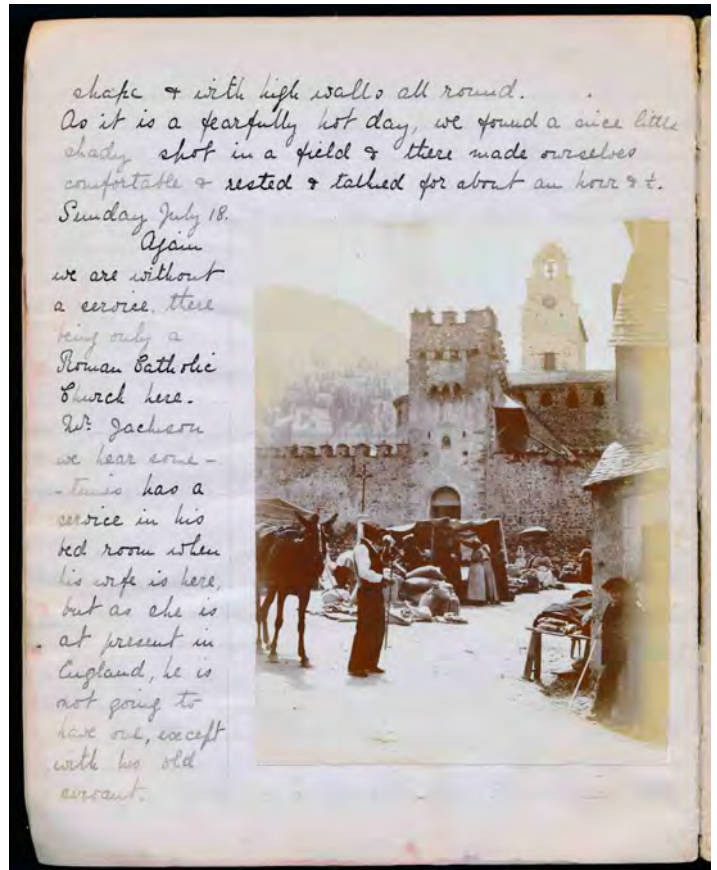 shape & with high walls all round.
As it is a fearfully hot day, we found a nice little
shady spot in a field & there made ourselves
comfortable & rested & talked for about an hour & ½.
Sunday July 18.
Again
we are without
a service. there
being only a
Roman Catholic
Church here.
Mr. Jackson
we hear some-
-times has a
service in his
bed room when
his wife is here,
but as she is
at present in
England, he is
not going to
have one, except
with his old
servant.